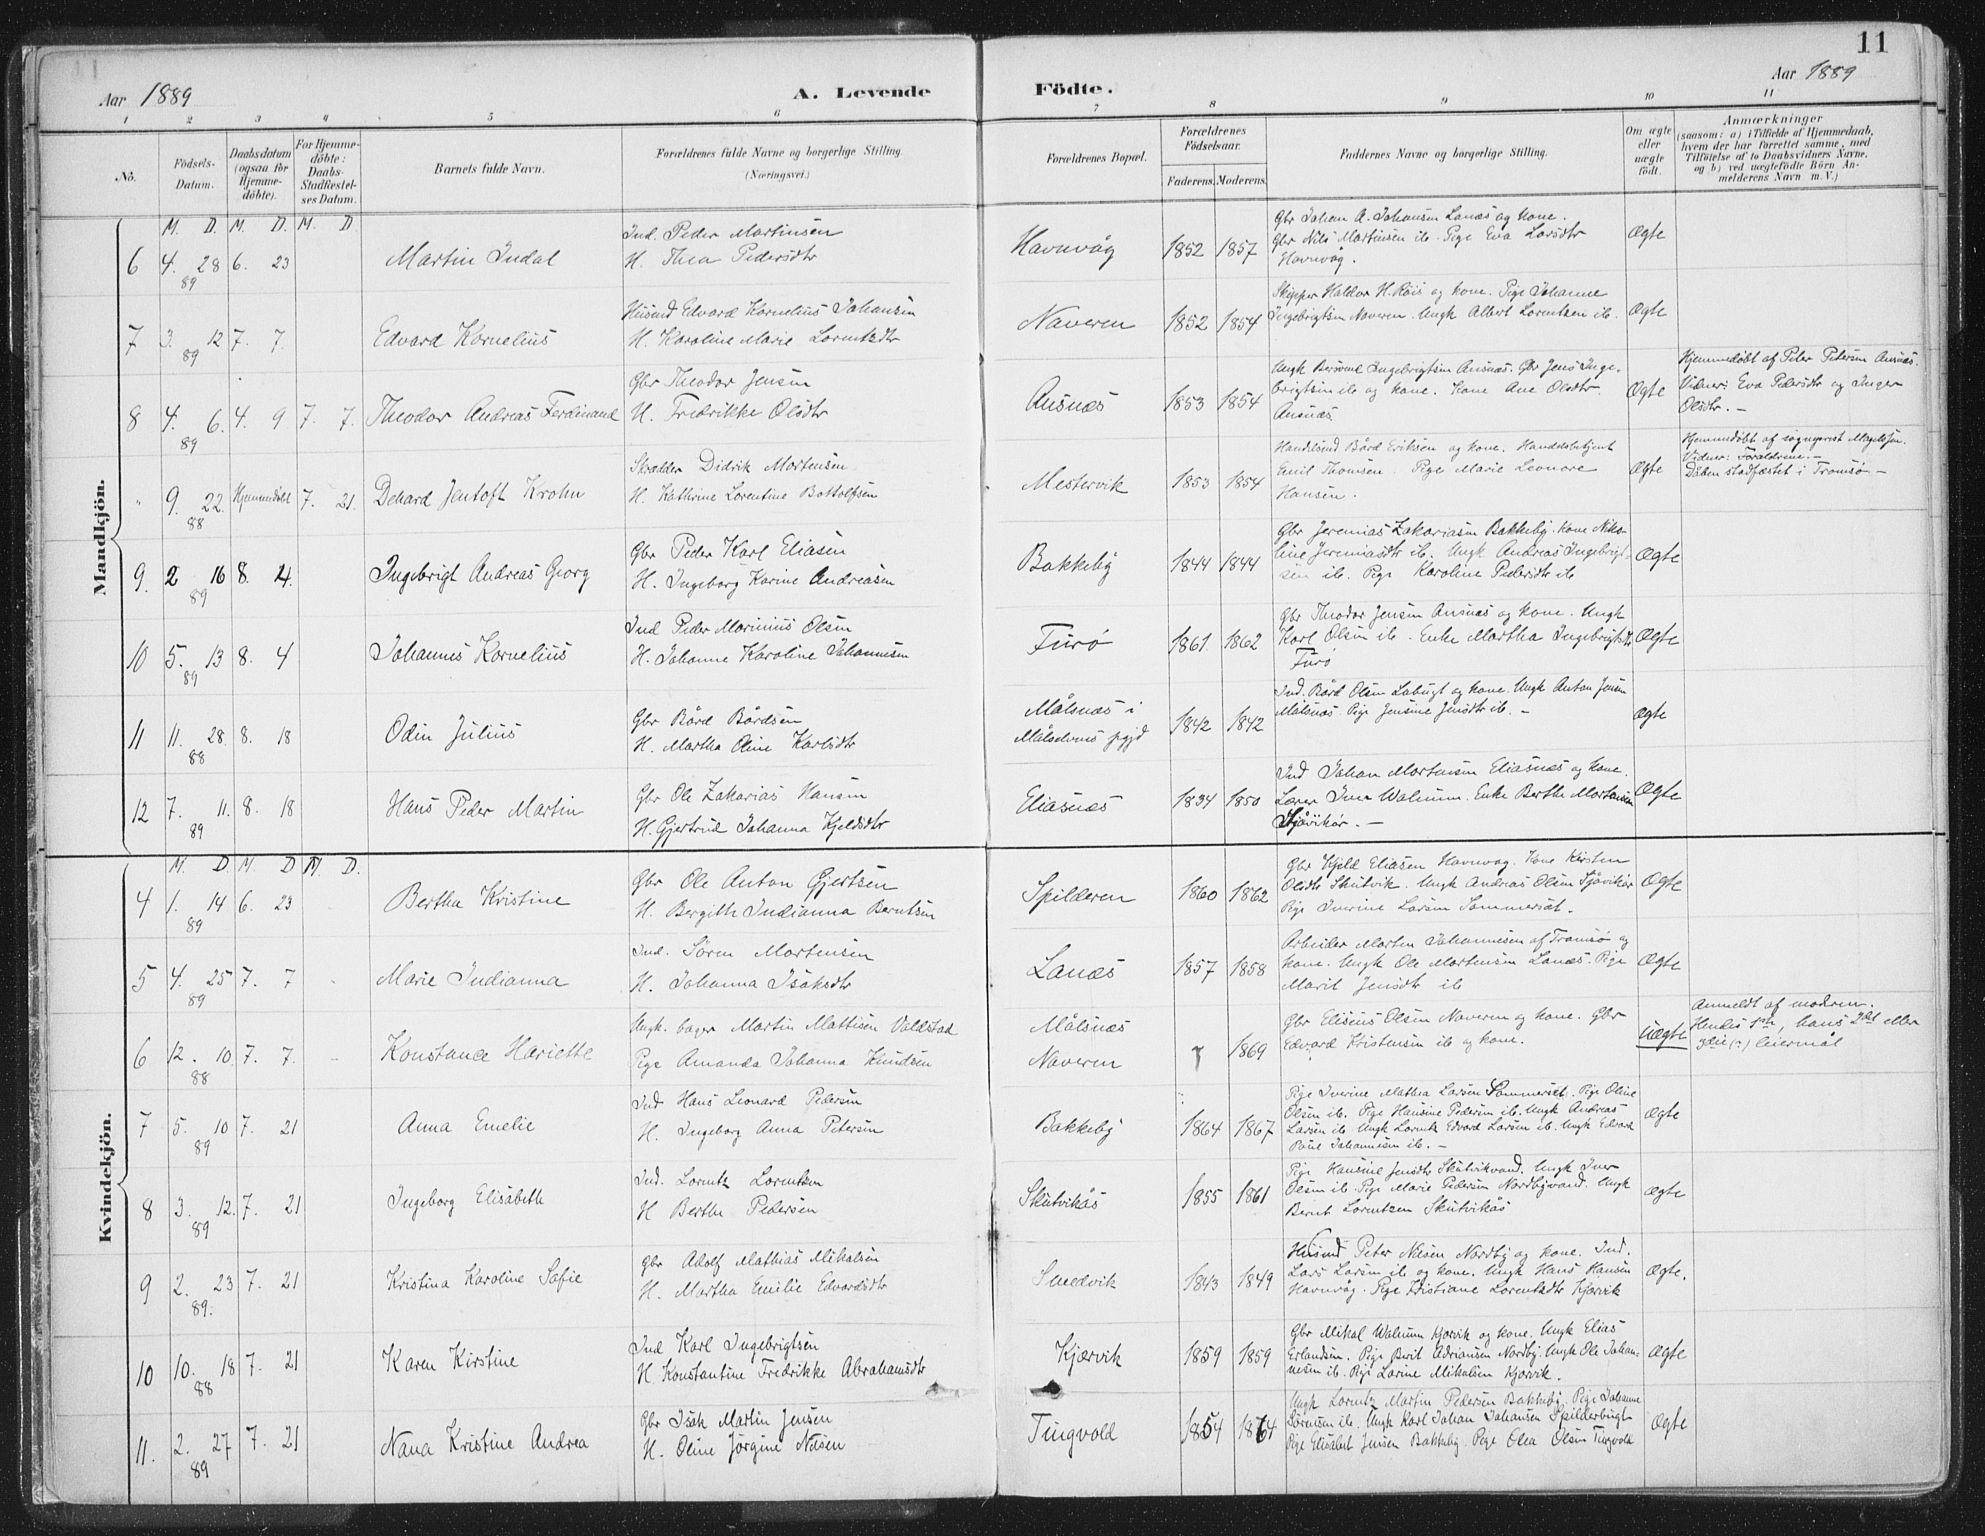 11
Aar 1889 A. Levende Födte. Aar 1889
1 2 3 4 5 6 7 8 9 10 11
No. Födsels-Datum. Daabsdatum (ogsaa for Hjemmedöbte). For Hjemmedöbte: Daabs-Stadfæstelses Datum. Barnets fulde Navn. Forældrenes fulde Navne og borgerlige Stilling. (Næringsvei.) Forældrenes Bopæl. Forældrenes Födselsaar. Faderens. Moderens. Faddernes Navne og borgerlige Stilling. Om ægte eller uægte födt. Anmærkninger (saasom: a) i Tilfælde af Hjemmedaab, hvem der har forrettet samme, med Tilföielse af to Daabsvidners Navne, og b) ved uægtefödte Börn Anmelderens Navn m. V.)
Mandkjön.
M. D. M. D. M. D.
6 4. 28 89 6. 23 Martin Indal
Ind. Peder Martinsen
H. Thea Pedersdtr
Havnvåg 1852 1857
Gbr Johan A. Johansen Lanæs og kone.
Gbr Nils Martinsen ib. Pige Eva Larsdtr
Havnvåg.
Ægte
7 3. 12 89 7. 7. Edvard Kornelius
Husmd Edvard Kornelius Johansen
H. Karoline Marie Lorentzdtr
Naveren 1852 1854
Skipper Haldor H. Röis og kone. Pige Johanne
Ingebrigtsen Naveren. Ungk Albert Lorentzen ib.
Ægte
8 4. 6. 89 4. 9 7. 7. Theodor Andreas Ferdinand
Gbr Theodor Jensen
H. Fredrikke Olsdtr
Ansnæs 1853 1854
Ungk Ingebrigtsen Ansnæs. Gbr Jens Inge-
brigtsen ib og kone. Kone Ane Olsdtr.
Ansnæs
Ægte
Hjemmedöbt af Peter Petersen Ansnæs.
Vidner: Eva Pedersdtr og Inger
Olsdtr. -
" 9. 22. 88 Hjemmedöbt 7. 21. Dehard Jentoft Krohn
Skrædder Didrik Mortensen
H. Kathrine Lorentine Bottolfsen
Mestervik 1853 1854
Handelsmd Bård Eriksen og kone. Handelsbetjent
Emil Thomsen. Pige Marie Leonore
Hansen.
Ægte
Hjemmedöbt af sognepræst
Vidner: Forældrene. -
Dåben stadfæstet i Tromsö -
9. 2 16 89 8. 4. Ingebrigt Andreas Georg
Gbr Peder Karl Eliasen
H. Ingeborg Karine Andreasen
Bakkeby 1844 1844
Gbr Jeremias Zakariasen Bakkeby. Kone Niko-
line Jeremiasdtr ib. Ungk Andreas Ingebrigt-
sen ib. Pige Karoline Pedersdtr ib
Ægte
10 5. 13 89 8. 4 Johannes Kornelius
Ind Peder Marinius Olsen
H. Johanne Karoline Johannesen
Furö 1861. 1862
Gbr Theodor Jensen Ansnæs og kone. Ungk
Karl Olsen ib. Enke Martha Ingebrigtsdtr
Furö
Ægte
11 11. 28. 88 8. 18 Odin Julius
Gbr Bård Bårdsen
H. Martha Oline Karlsdtr
Målsnæs i
Målselvens pgjd
1842 1842
Ind. Bård Olsen Labugt og kone. Ungk Anton Jensen
Målsnæs. Pige Jensine Jensdtr ib. -
Ægte
12 7. 11. 89 8. 18 Hans Peder Martin
Gbr Ole Zakarias Hansen
H. Gjertrud Johanna Kjeldsdtr
Eliasnæs 1834 1850
Ind Johan Mortensen Eliasnæs og kone.
Lærer Iver Walnum. Enke Berthe Mortensen
Sjåvikör. -
Ægte
Kvindekjön.
M. D. M. D M. D.
4 1. 14 89 6. 23 Bertha Kristine
Gbr Ole Anton Gjertsen
H. Bergith Indianna Berntsen
Spilderen 1860 1862
Gbr Kjeld Eliasen Havnvåg. Kone Kirsten
Olsdtr Skutvik. Ungk Andreas Olsen Sjåvikör
Pige Iverine Larsen Sommersæt.
Ægte
5 4. 25 89 7. 7 Marie Indianna
Ind. Sören Mortensen
H. Johanna Isaksdtr
Lanæs 1857 1858
Arbeider Morten Johannesen af Tromsö og
kone. Ungk Ole Mortensen Lanæs. Pige
Marit Jensdtr ib
Ægte
6 12. 10. 88 7. 7. Konstance Hariette
Ungk. bager Martin Mattisen Valdstad
Pige Amanda Johanna Knudsen
Målsnæs
Naveren
1869
Gbr Eliseus Olsen Naveren og kone. Gbr
Edvard Kristensen ib og kone.
Uægte
Anmeldt af modren.
Hendes 1ste, hans 2det eller
3die (?) leiermål
7 5. 10 89 7. 21 Anna Emelie
Ind Hans Leonard Pedersen
H. Ingeborg Anna Petersen
Bakkeby 1864 1867
Pige Iverine Mathea Larsen Sommersæt. Pige Oline
Olsen ib. Pige Hansine Pedersen ib. Ungk Andreas
Larsen ib. Ungk Lorentz Edvard Larsen ib. Ungk Edvard
Johannesen ib. -
Ægte
8 3. 12. 89 7. 21 Ingeborg Elisabeth
Ind. Lorentz Lorentzen
H Berthe Pedersen
Skutvikås 1855 1861
Pige Hansine Jensdtr Skutvikvand. Ungk Iver
Olsen ib. Pige Marie Pedersen Nordbyvand. Ungk
Bernt Lorentzen Skutvikås
Ægte
9 2. 23 89. 7. 21 Kristina Karoline Sofie
Gbr Adolf Mathias Mikalsen
H. Martha Emilie Edvardsdtr
Smedvik 1843 1849
Husmd Peter Nilsen Nordby og kone. Ind.
Lars Larsen ib og kone. Ungk Hans Hansen
Havnvåg. Pige Kristiane Lorentzdtr Kjærvik
Ægte.
10 10. 18 88 7. 21 Karen Kirstine
Ind Karl Ingebrigtsen
H. Konstantine Fredrikke Abrahamsdtr
Kjærvik 1859 1859
Gbr Mikal Walnum Kjærvik og kone. Ungk Elias
Erlandsen. Pige Berit Adriansen Nordby. Ungk Ole Johan-
nesen ib. Pige Larine Mikalsen Kjærvik.
Ægte
11. 2. 27 89 7. 21 Nana Kristine Andrea
Gbr Isak Martin Jensen
H. Oline Jörgine Nilsen
Tingvold 1854 1864
Ungk Lorentz Martin Pedersen Bakkeby. Pige Johanne
Sörensen ib. Ungk Karl Johan Johansen Spilderbugt
Pige Elisabet Jensen Bakkeby. Pige Olea Olsen Tingvold
Ægte